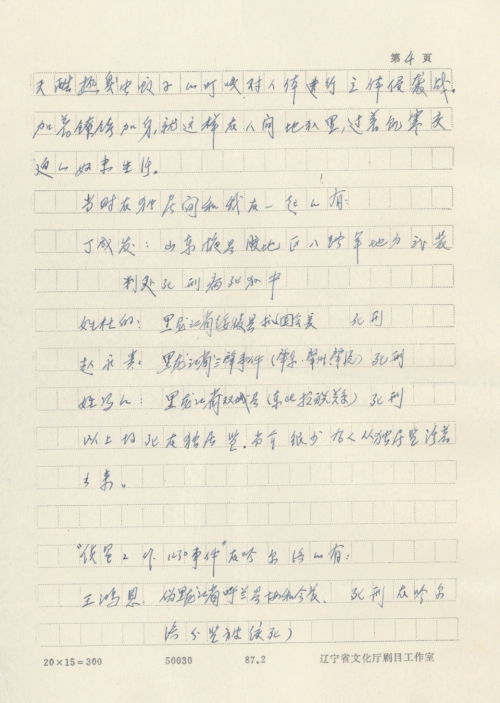 第4页
天酷热臭虫蚊子的叮咬对人体进行立体侵袭战。
加着镣铐加身，就这样在人间地狱里，过着饥寒交
迫的奴隶生活。
当时在独居间和我在一起的有：
丁成发：山东掖县胶地区八路军地方武装
判处死刑病死狱中
姓杜的：黑龙江省绥棱县抗国会员 死刑
赵永贵：黑龙江省三肇事件（肇东、肇州、肇源）死刑
姓冯的：黑龙江省双城县（东北抗联关系）死刑
以上均死在独居监。当年很少有人从独居监活着
出来。
“铁字工作1150事件”在哈尔滨的有：
王鸿恩：伪黑龙江省呼兰县协和会长、死刑在哈尔
滨分监被绞死）
20×15=300 50030 87.2 辽宁省文化厅剧目工作室